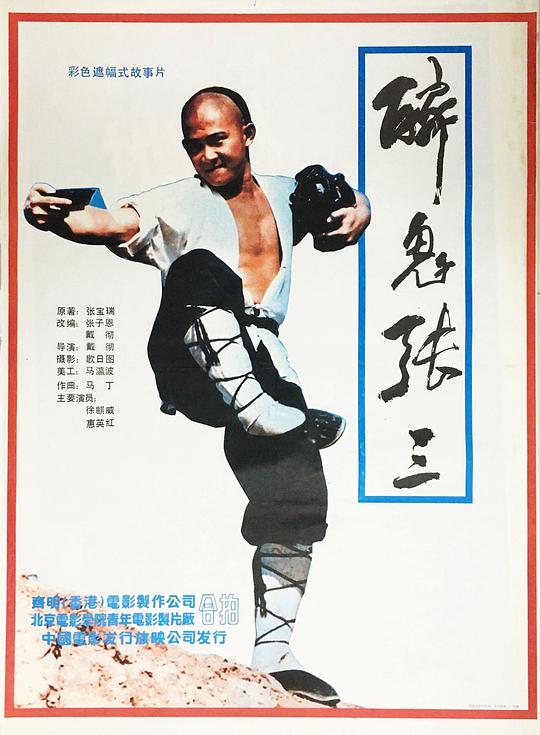 彩色遮幅式故事片
醉鬼张三
原著：张宝瑞
改编：张子恩
戴 彻
导演：戴 彻
摄影：歌日图
美工：马瀛波
作曲：马 丁
主要演员：
徐麒威
惠英红
齊明（香港）電影製作公司
北京電影学院青年電影製片廠
合拍
中國電影发行放映公司发行